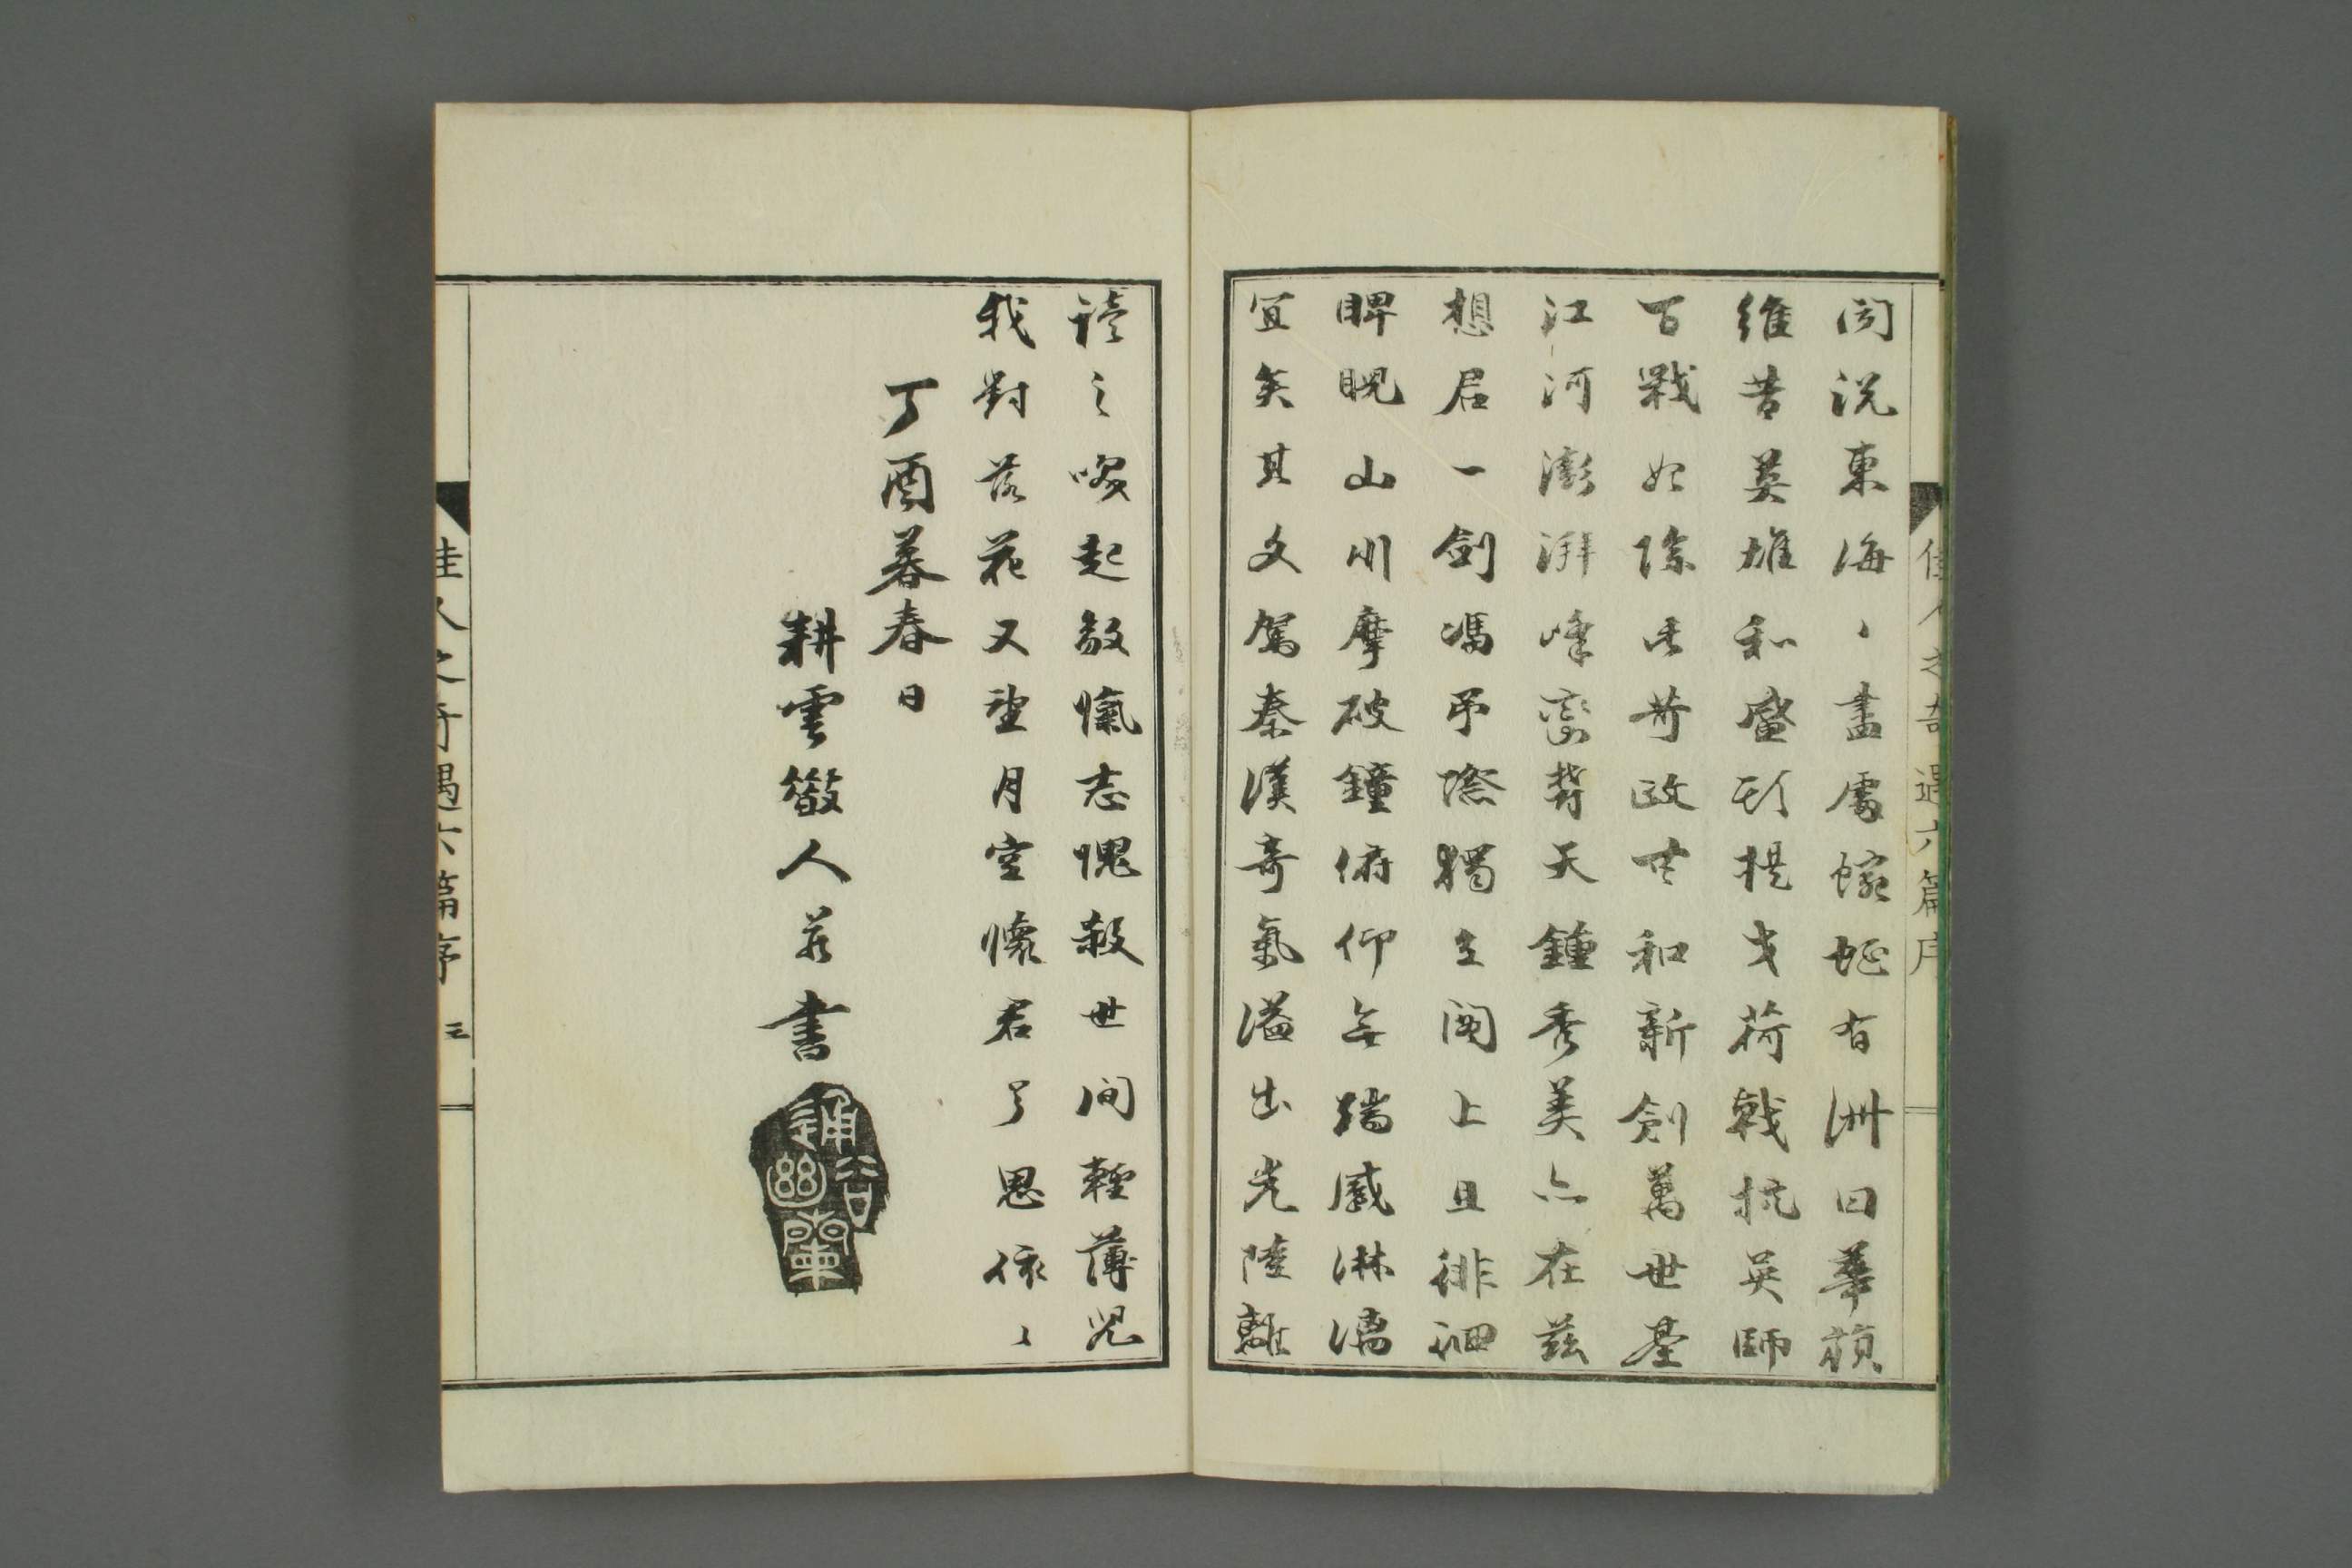 佳人之奇遇六篇序
聞說東海〻盡處蜿蜒有洲曰華
維昔英雄和盛頓提戈荷戟抗英師
百戰始除虐苛政共和新創萬世基
江河澎湃峰巒聳天鍾秀美亦在茲
想君一劍馮弔際獨立閣上且徘徊
睥睨山川摩破鐘俯仰無端感淋漓
宜矣其文駕秦漢奇氣溢出光陸離
讀之喚起敵愾志愧殺世間輕薄兒
我對落花又望月空懷君了思依〻
丁酉暮春日
耕雲人並書
佳人之奇遇六篇序 三